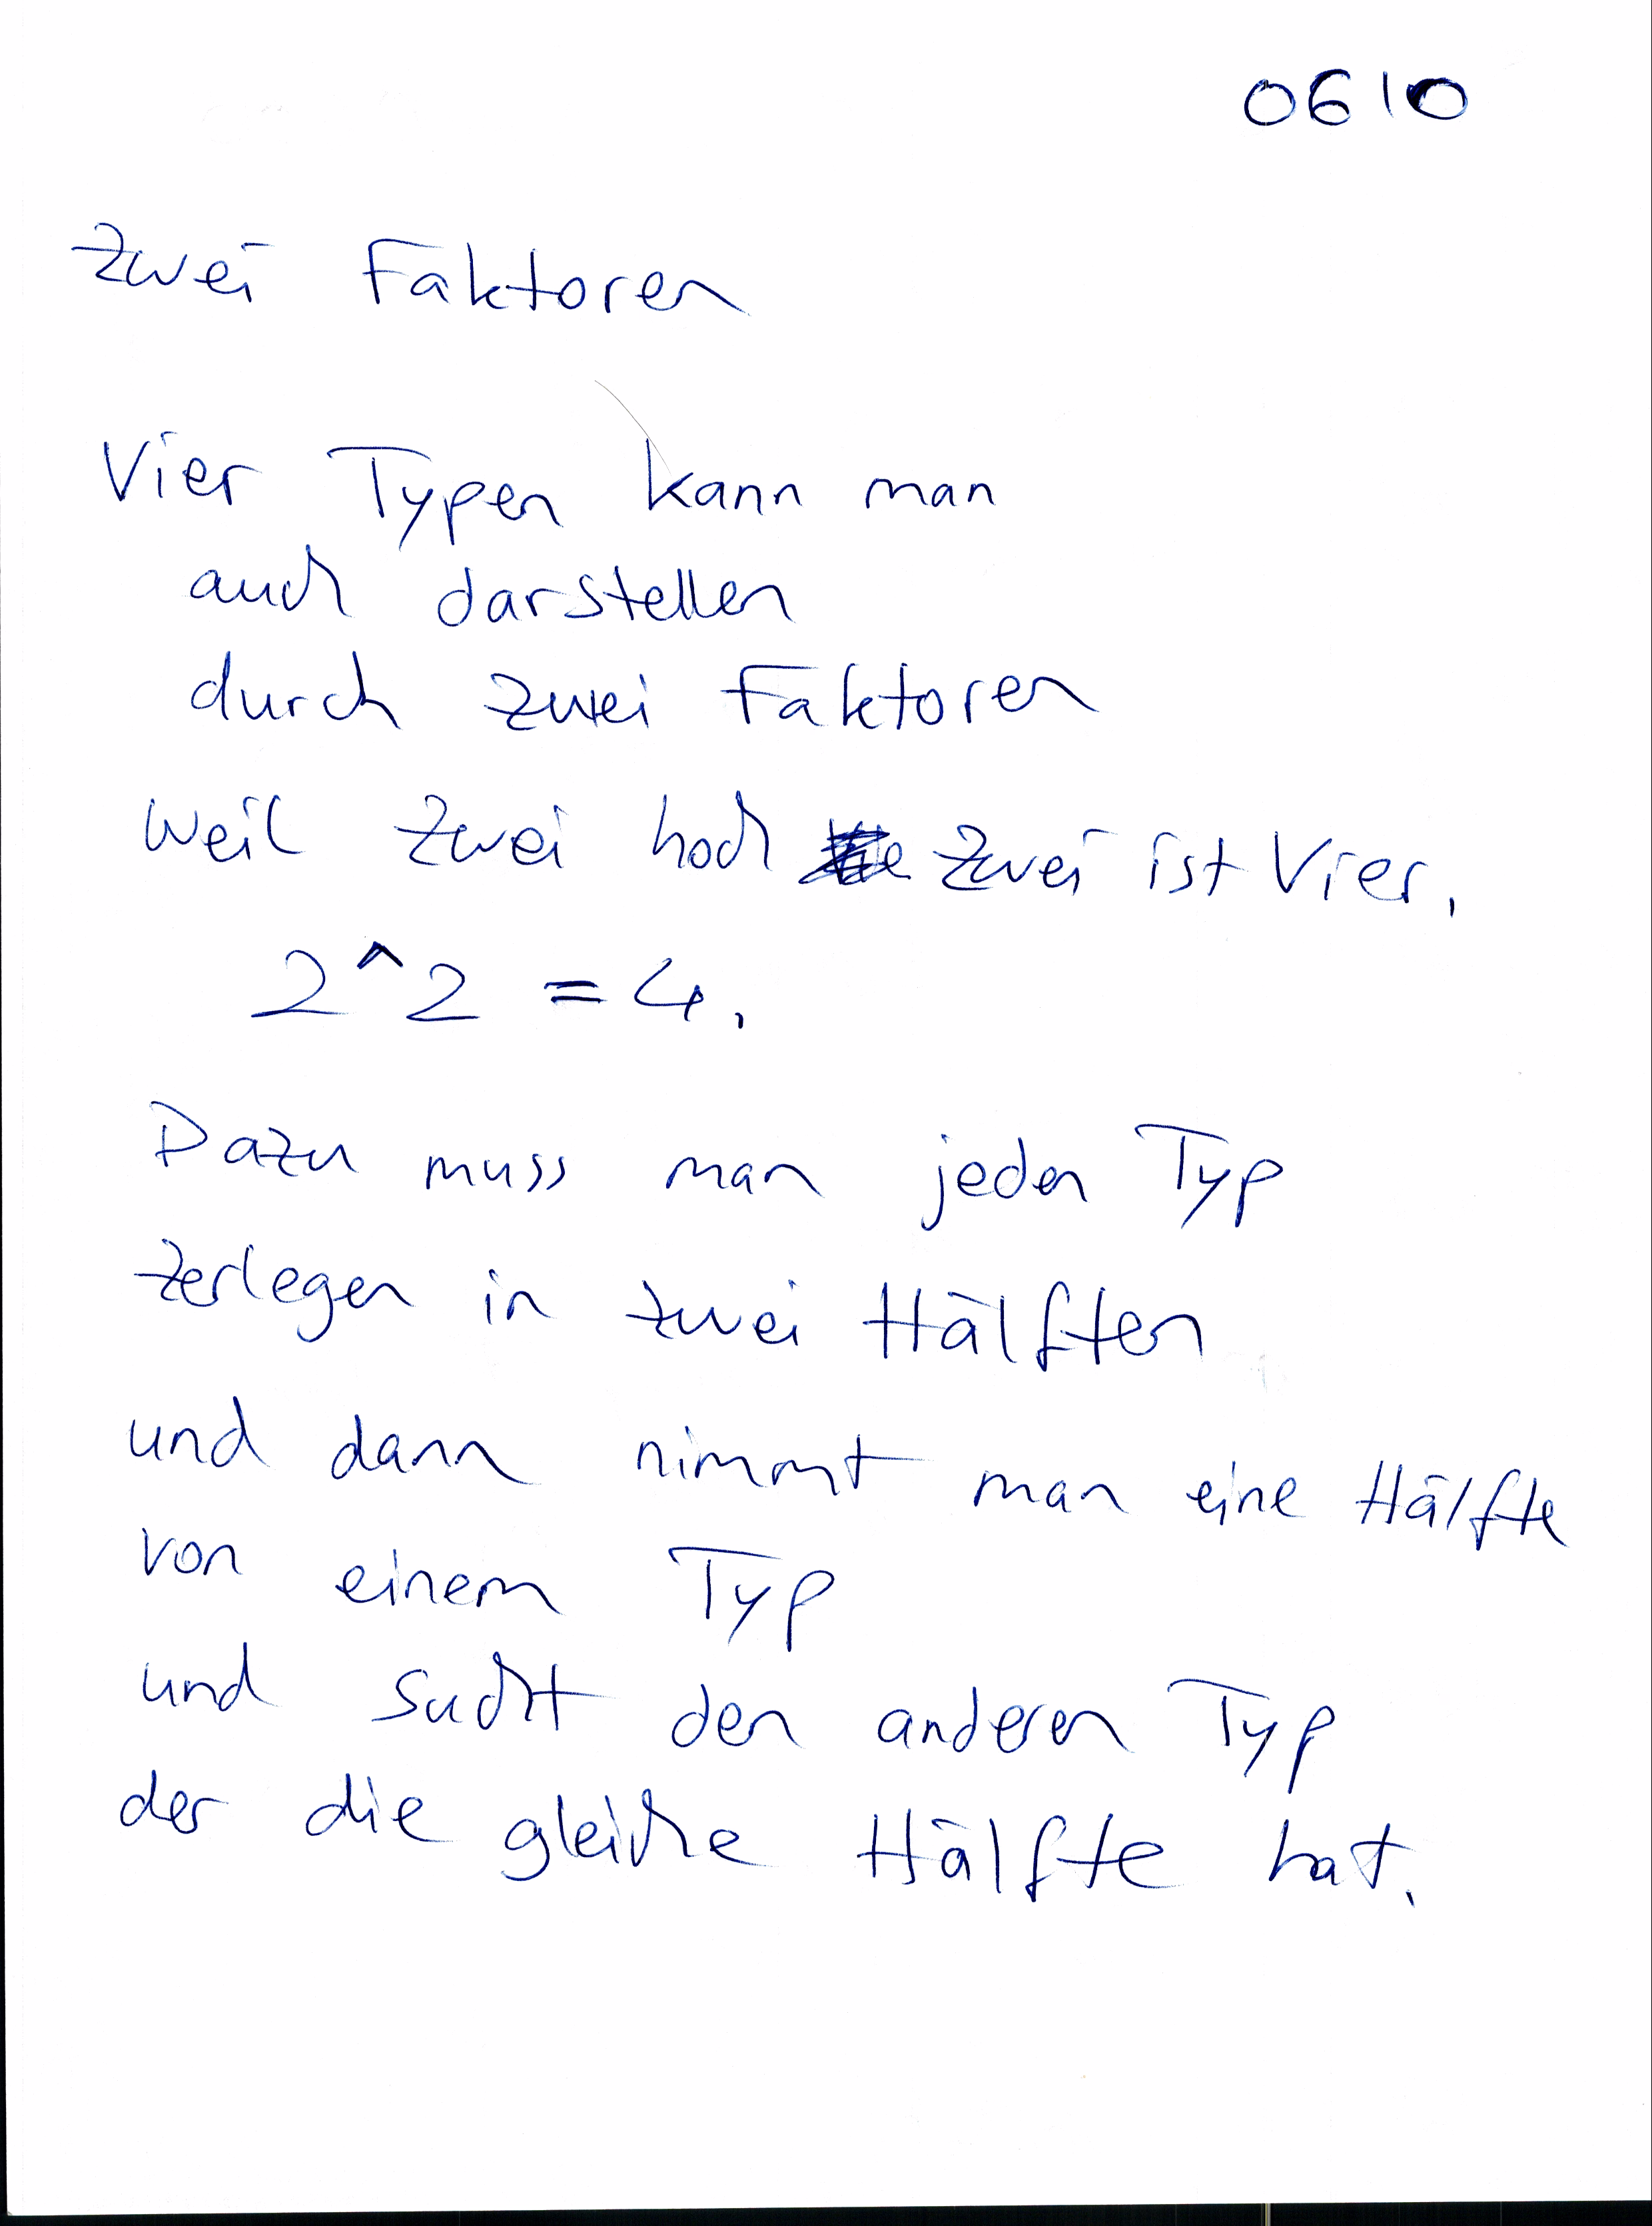 0610
Zwei Faktoren
Vier Typen kann man
auch darstellen
durch zwei Faktoren
weil zwei hoch zwei ist Vier.
2^2 = 4.
Dazu muss man jeden Typ
zerlegen in zwei Hälften
und dann nimmt man eine Hälfte
von einem Typ
und sucht den anderen Typ
der die gleiche Hälfte hat.